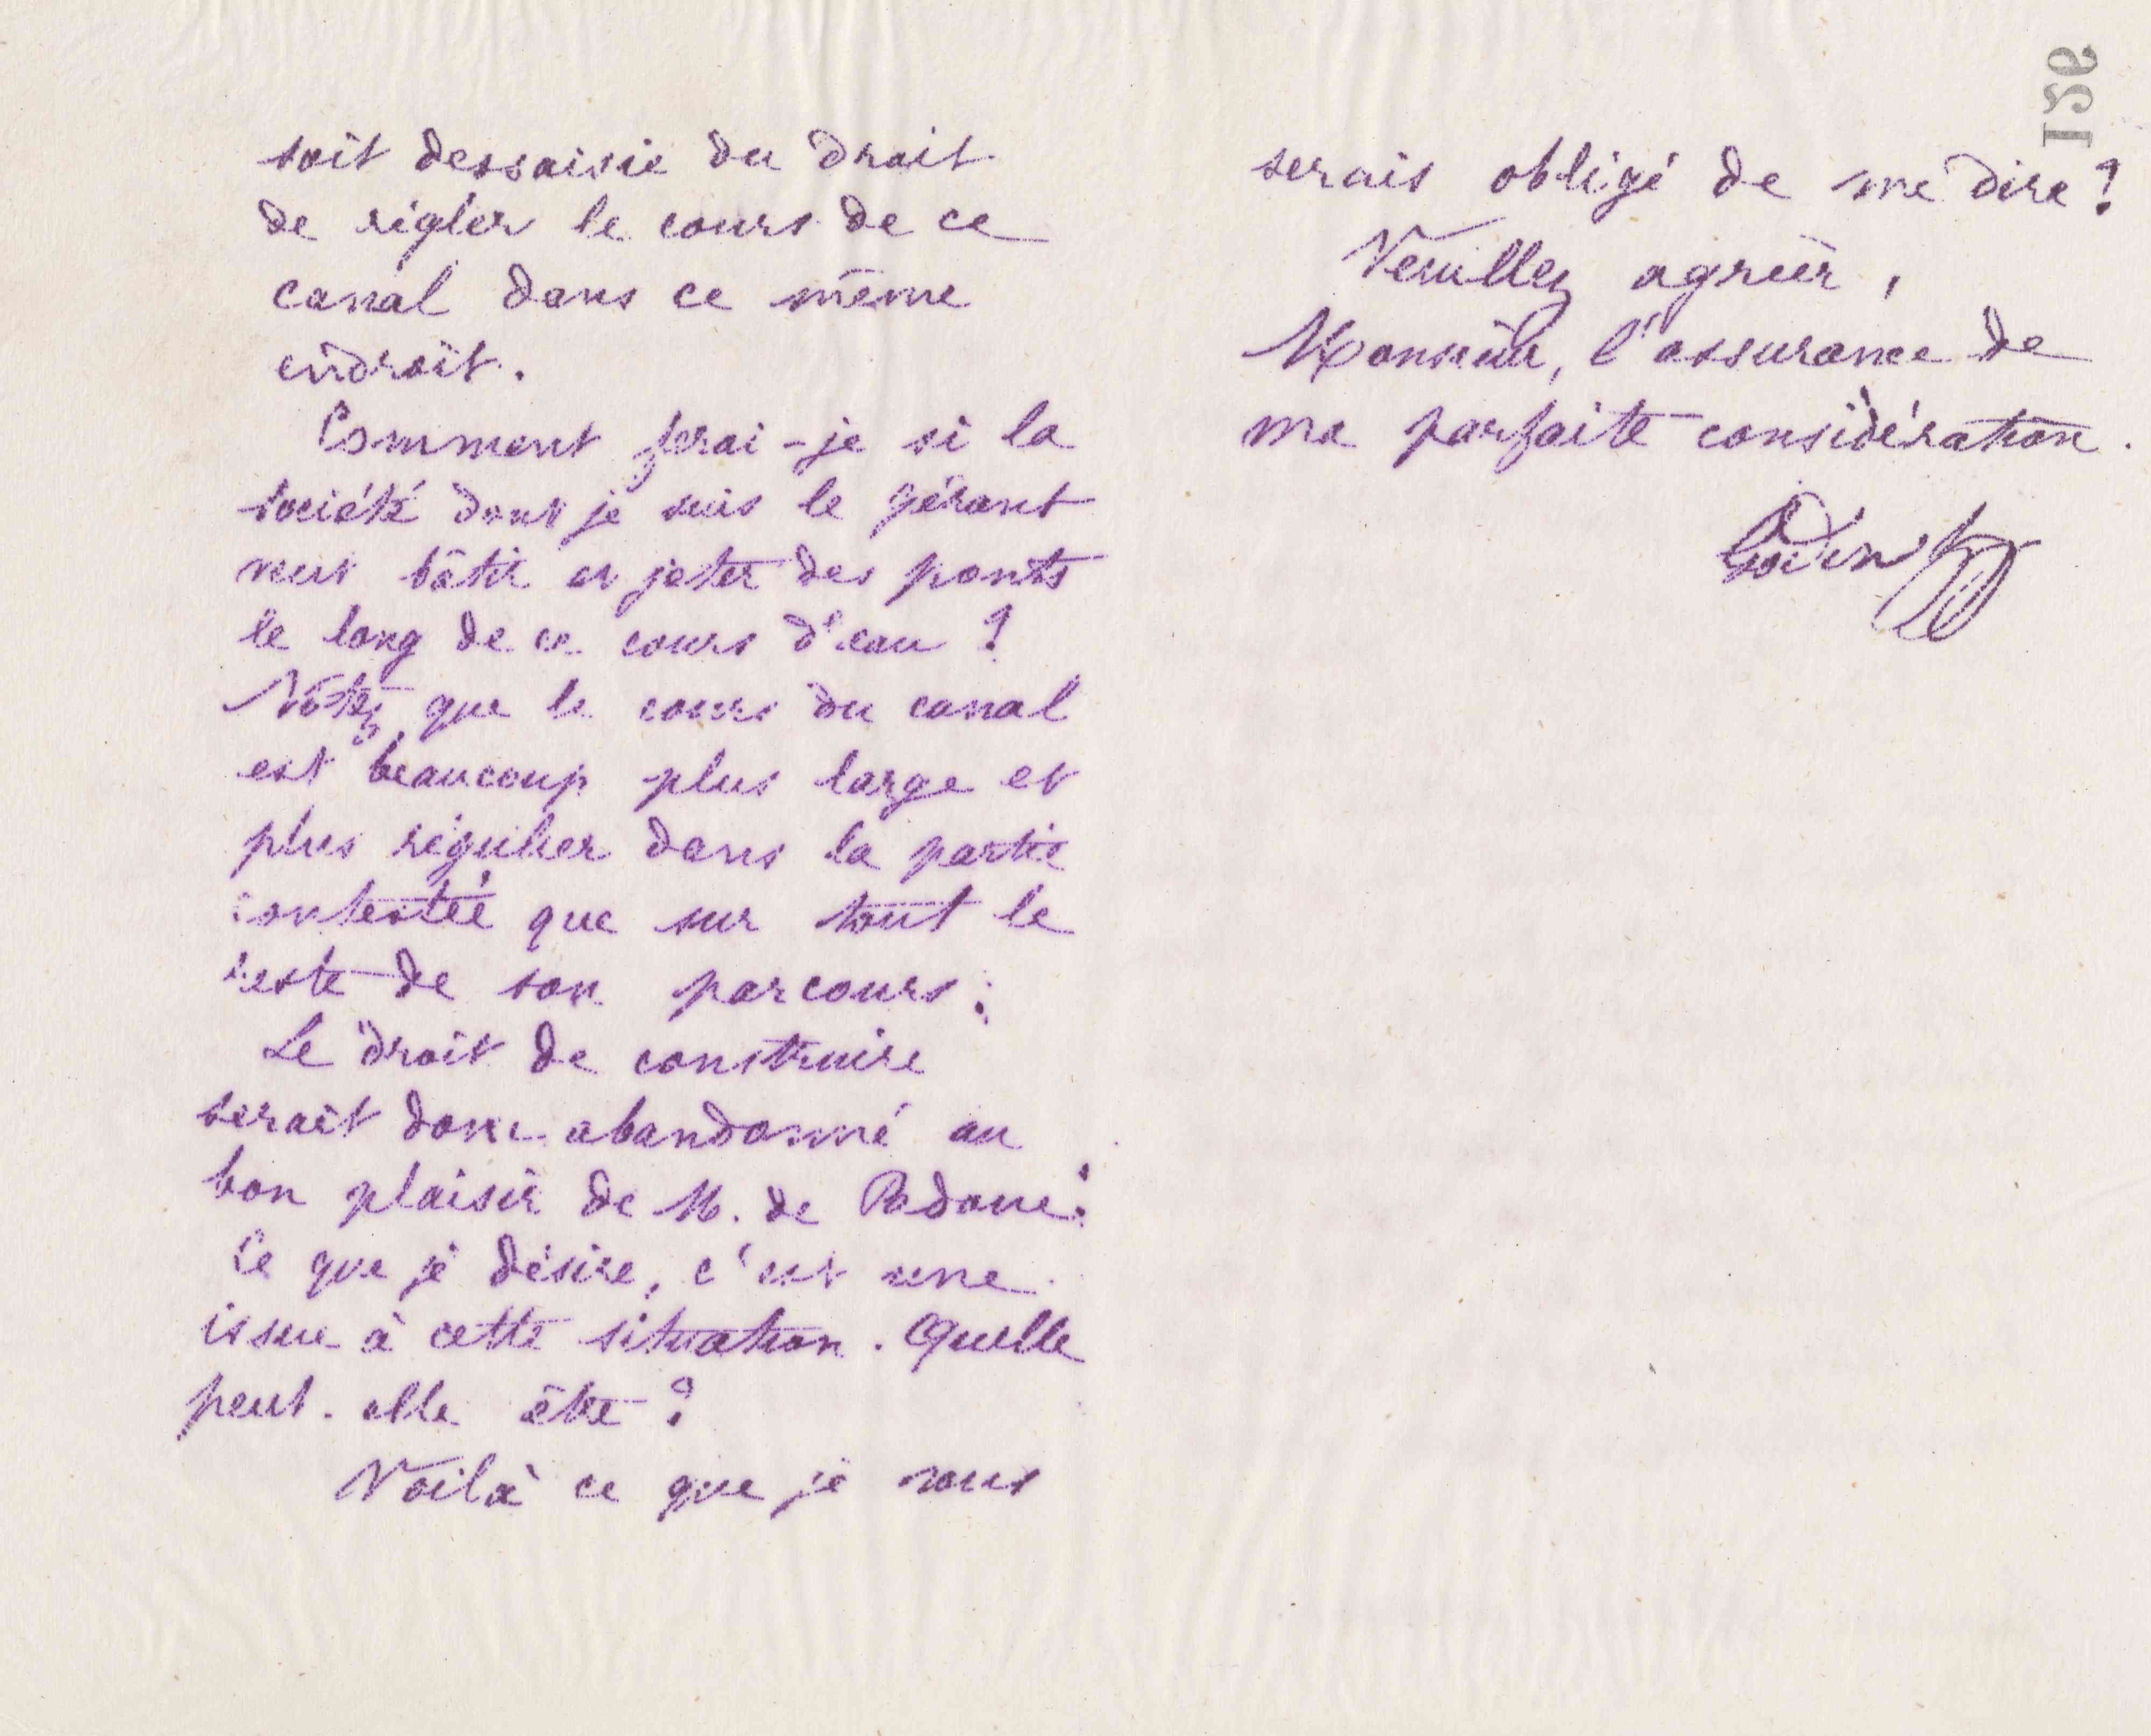 soit dessaisie du droit
de régler le cours de ce
canal dans ce même
endroit.
Comment ferai-je si la
société dont je suis le gérant
veut bâtir et jeter des ponts
le long de ce cours d'eau ?
Notez que le cours du canal
est beaucoup plus large et
plus régulier dans la partie
contestée que sur tout le
reste de son parcours.
Le droit de construire
serait donc abandonné au
bon plaisir de M. de Padoue.
Ce que je désire, c'est une
issue à cette situation. Quelle
peut-elle être ?
Voilà ce que je vous
152
serais obligé de me dire ?
Veuillez agréer,
Monsieur, l'assurance de
ma parfaite considération.
Godin